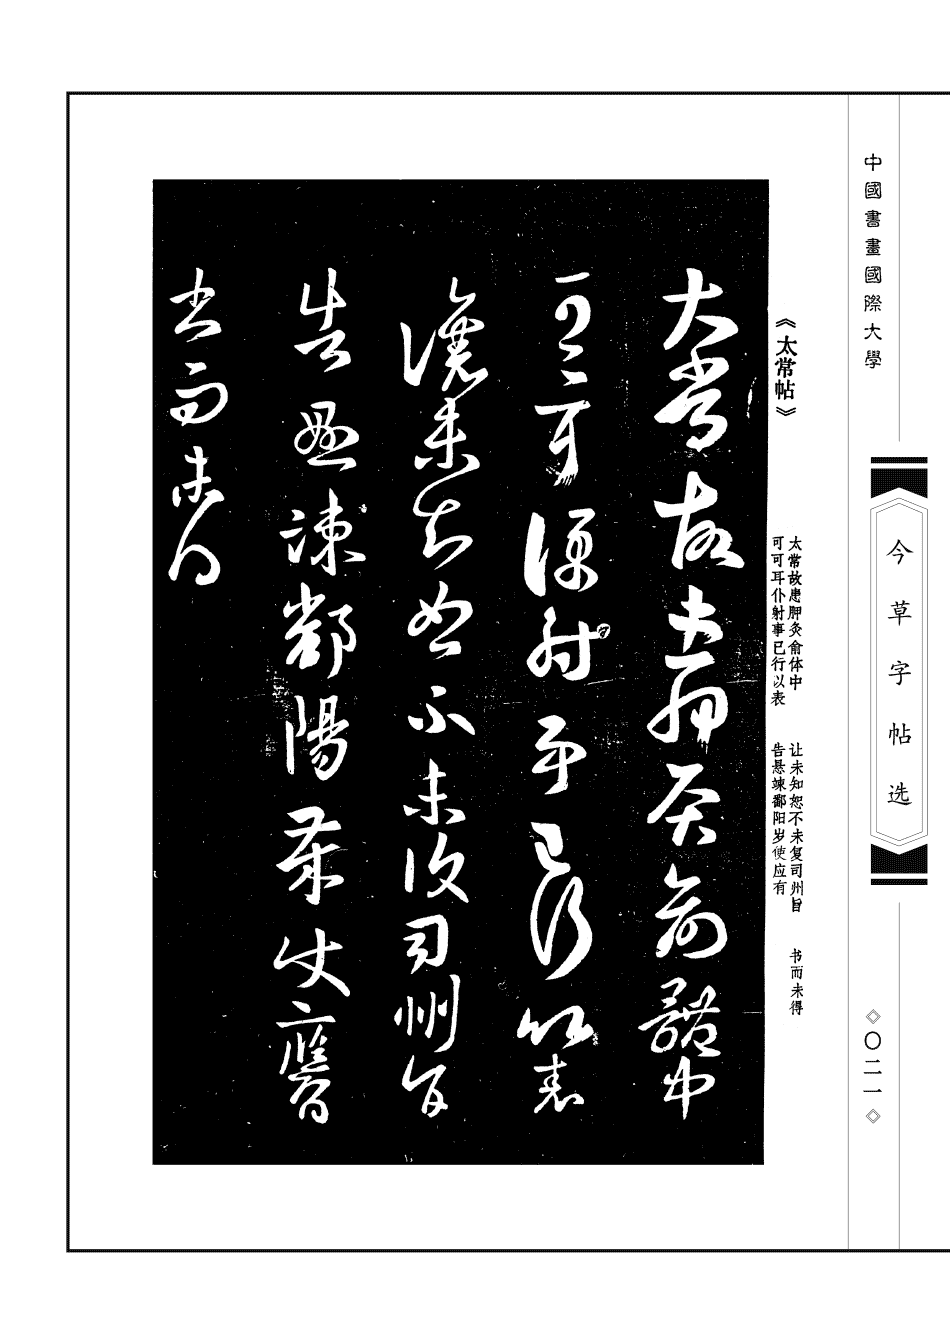 中國書畫國際大學
今草字帖选
◇〇二一◇
《太常帖》
太常故患胛灸俞体中
可可耳仆射事已行以表
让未知恕不未复司州旨
告悬竦鄱阳岁使应有
书而未得
太常故患胛灸俞體中
可可耳僕射事已行以表
讓未知恕不未復司州旨
告懸竦鄱陽歲使應有
書而未得